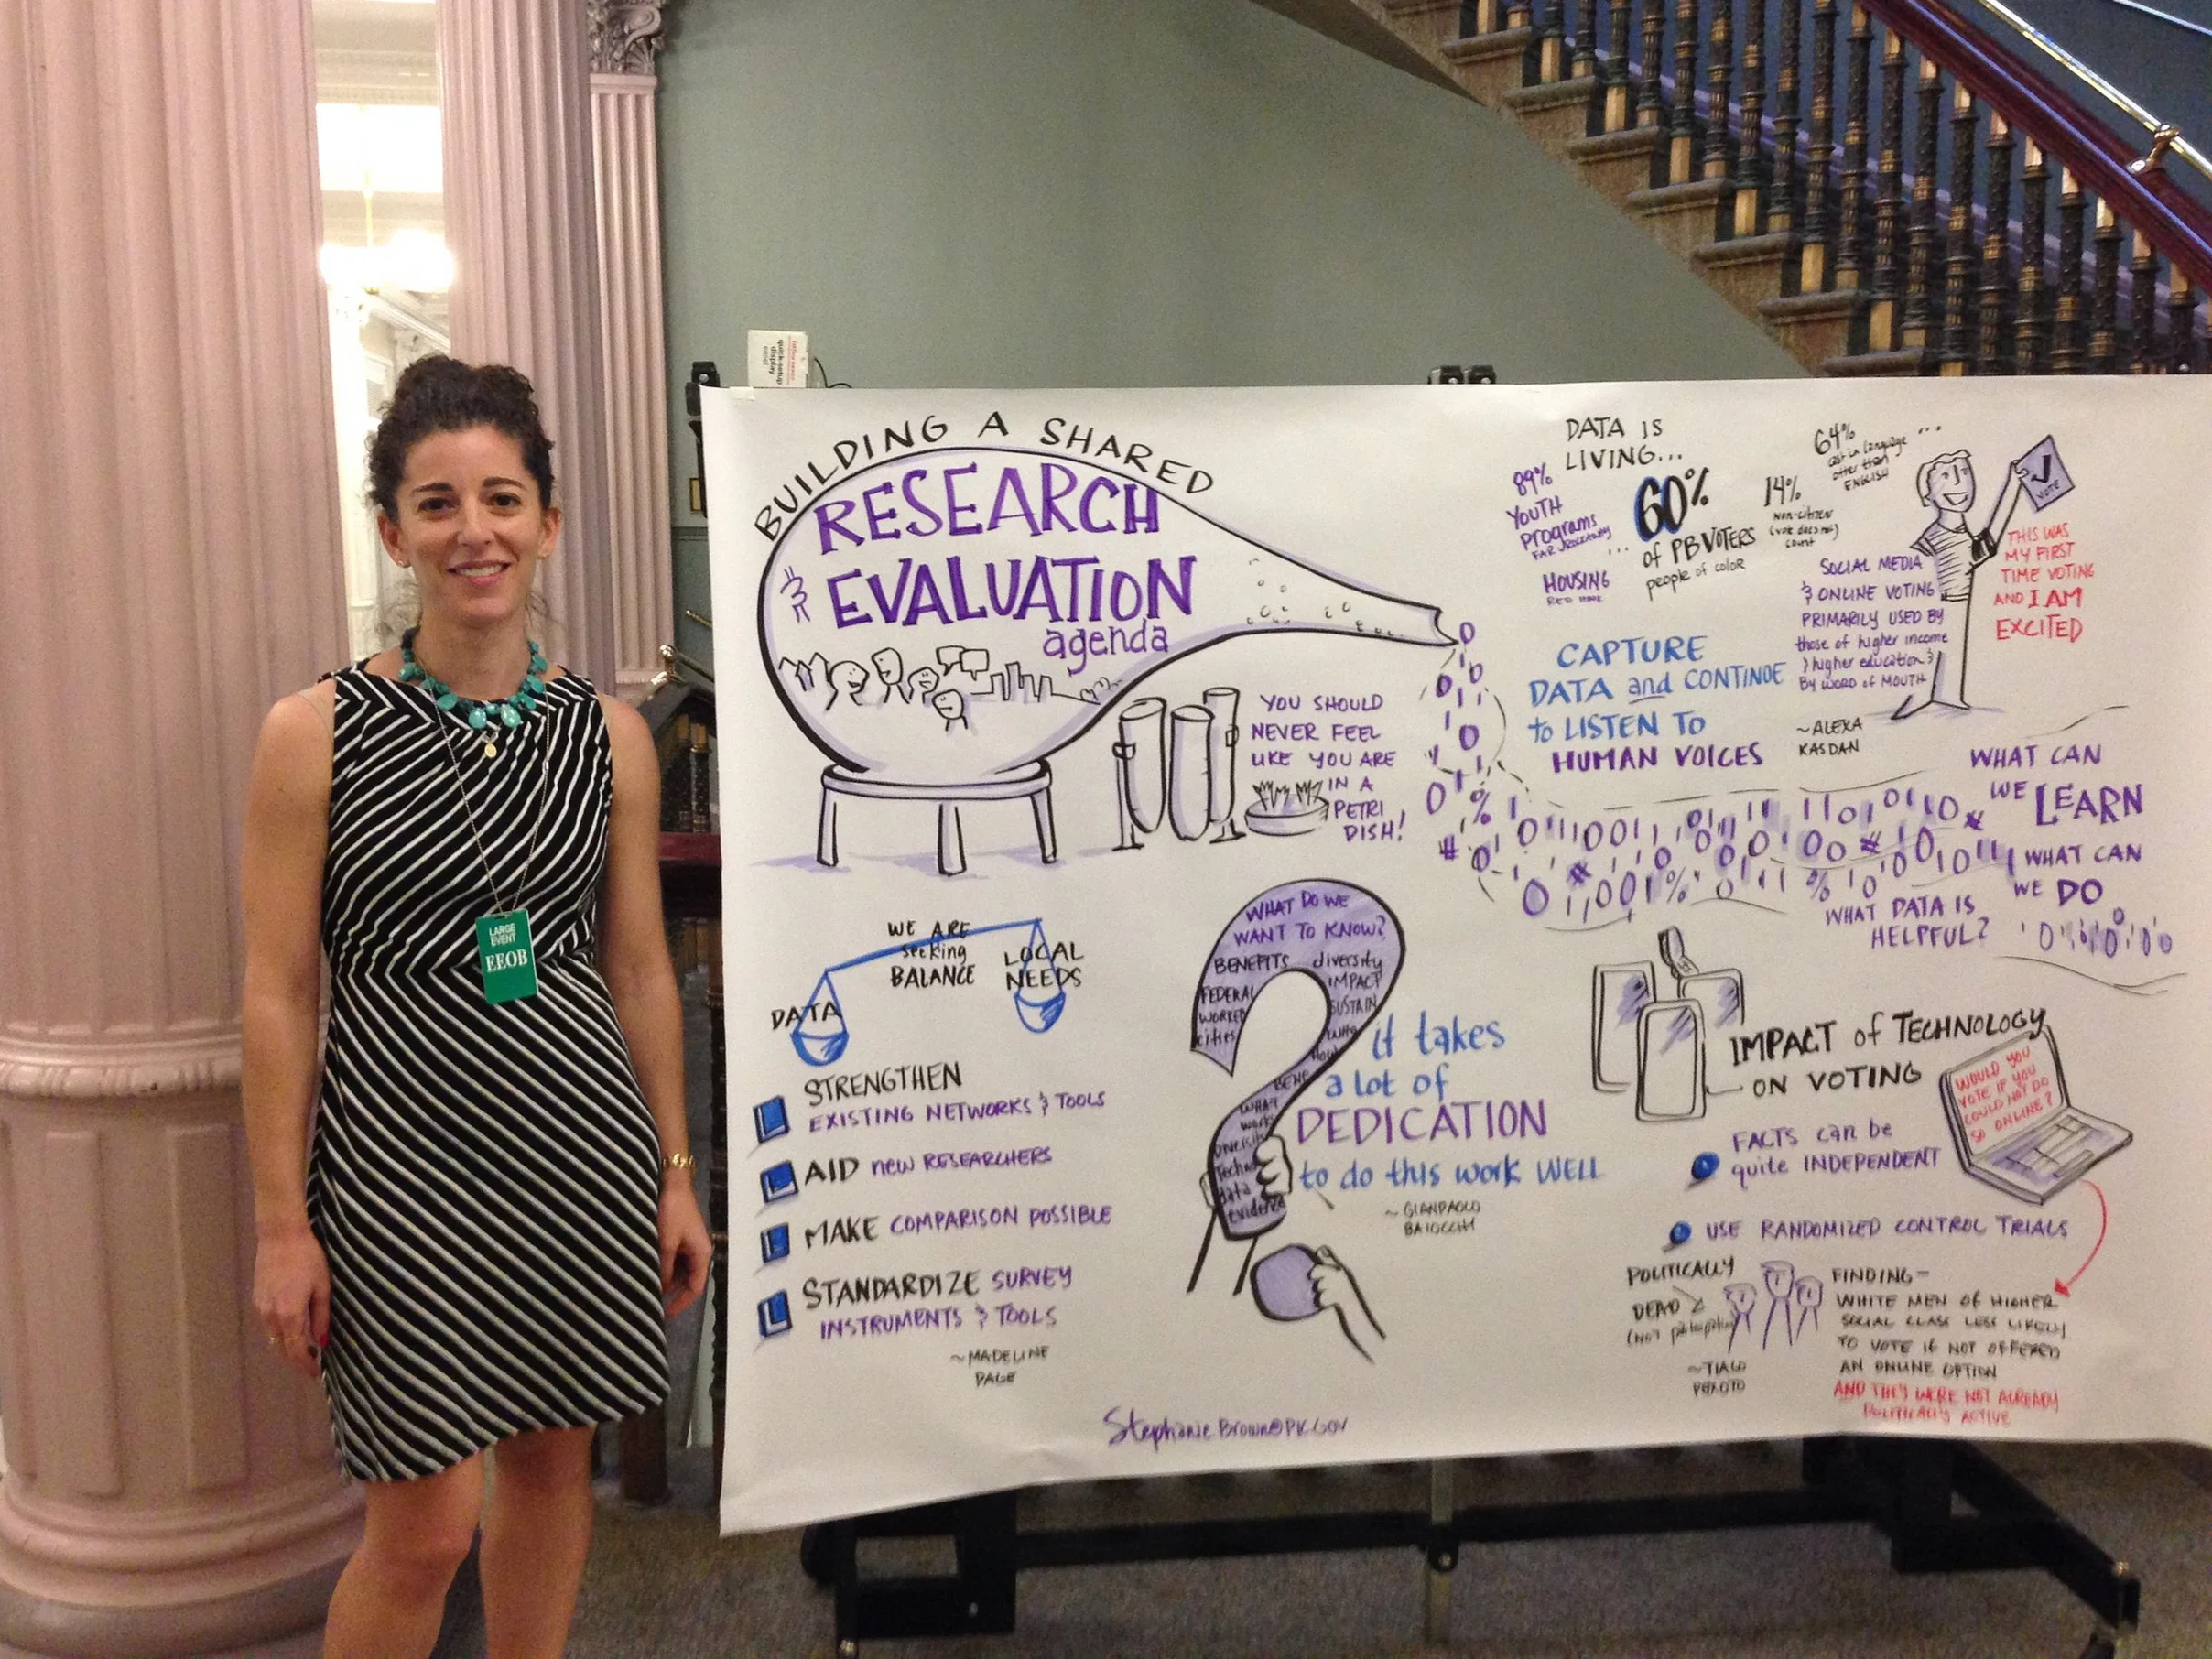 LARGE
EVENT
EEOB
quick-setup
display
BUILDING A SHARED
RESEARCH
& EVALUATION
agenda
YOU SHOULD
NEVER FEEL
LIKE YOU ARE
IN A
PETRI
DISH!
WE ARE
seeking
BALANCE
DATA
LOCAL
NEEDS
STRENGTHEN
EXISTING NETWORKS & TOOLS
AID new RESEARCHERS
MAKE COMPARISON POSSIBLE
STANDARDIZE SURVEY
INSTRUMENTS & TOOLS
~MADELINE
PAGE
WHAT DO WE
WANT TO KNOW?
BENEFITS diversity
FEDERAL IMPACT
WORKED SUSTAIN
cities
WHAT
works
data
evidence
it takes
a lot of
DEDICATION
to do this work WELL
~GIANPAOLO
BAIOCCHI
DATA IS
LIVING...
89%
YOUTH
Programs
HOUSING
60%
of PB VOTERS
people of color
14%
NON-CITIZEN
(vote does not)
count
64%
cast in language
other than
ENGLISH
VOTE
THIS WAS
MY FIRST
TIME VOTING
AND I AM
EXCITED
SOCIAL MEDIA
& ONLINE VOTING
PRIMARILY USED BY
those of higher income
& higher education &
BY WORD of MOUTH
~ALEXA
KASDAN
CAPTURE
DATA and CONTINUE
to LISTEN TO
HUMAN VOICES
WHAT CAN
WE LEARN
WHAT CAN
WE DO
WHAT DATA IS
HELPFUL?
IMPACT of TECHNOLOGY
ON VOTING
WOULD YOU
VOTE IF YOU
COULD NOT DO
SO ONLINE?
FACTS can be
quite INDEPENDENT
USE RANDOMIZED CONTROL TRIALS
POLITICALLY
DEAD
(NOT participating
~TIAGO
PEIXOTO
FINDING-
WHITE MEN OF HIGHER
SOCIAL CLASS LESS LIKELY
TO VOTE IF NOT OFFERED
AN ONLINE OPTION
AND THEY WERE NOT ALREADY
POLITICALLY ACTIVE